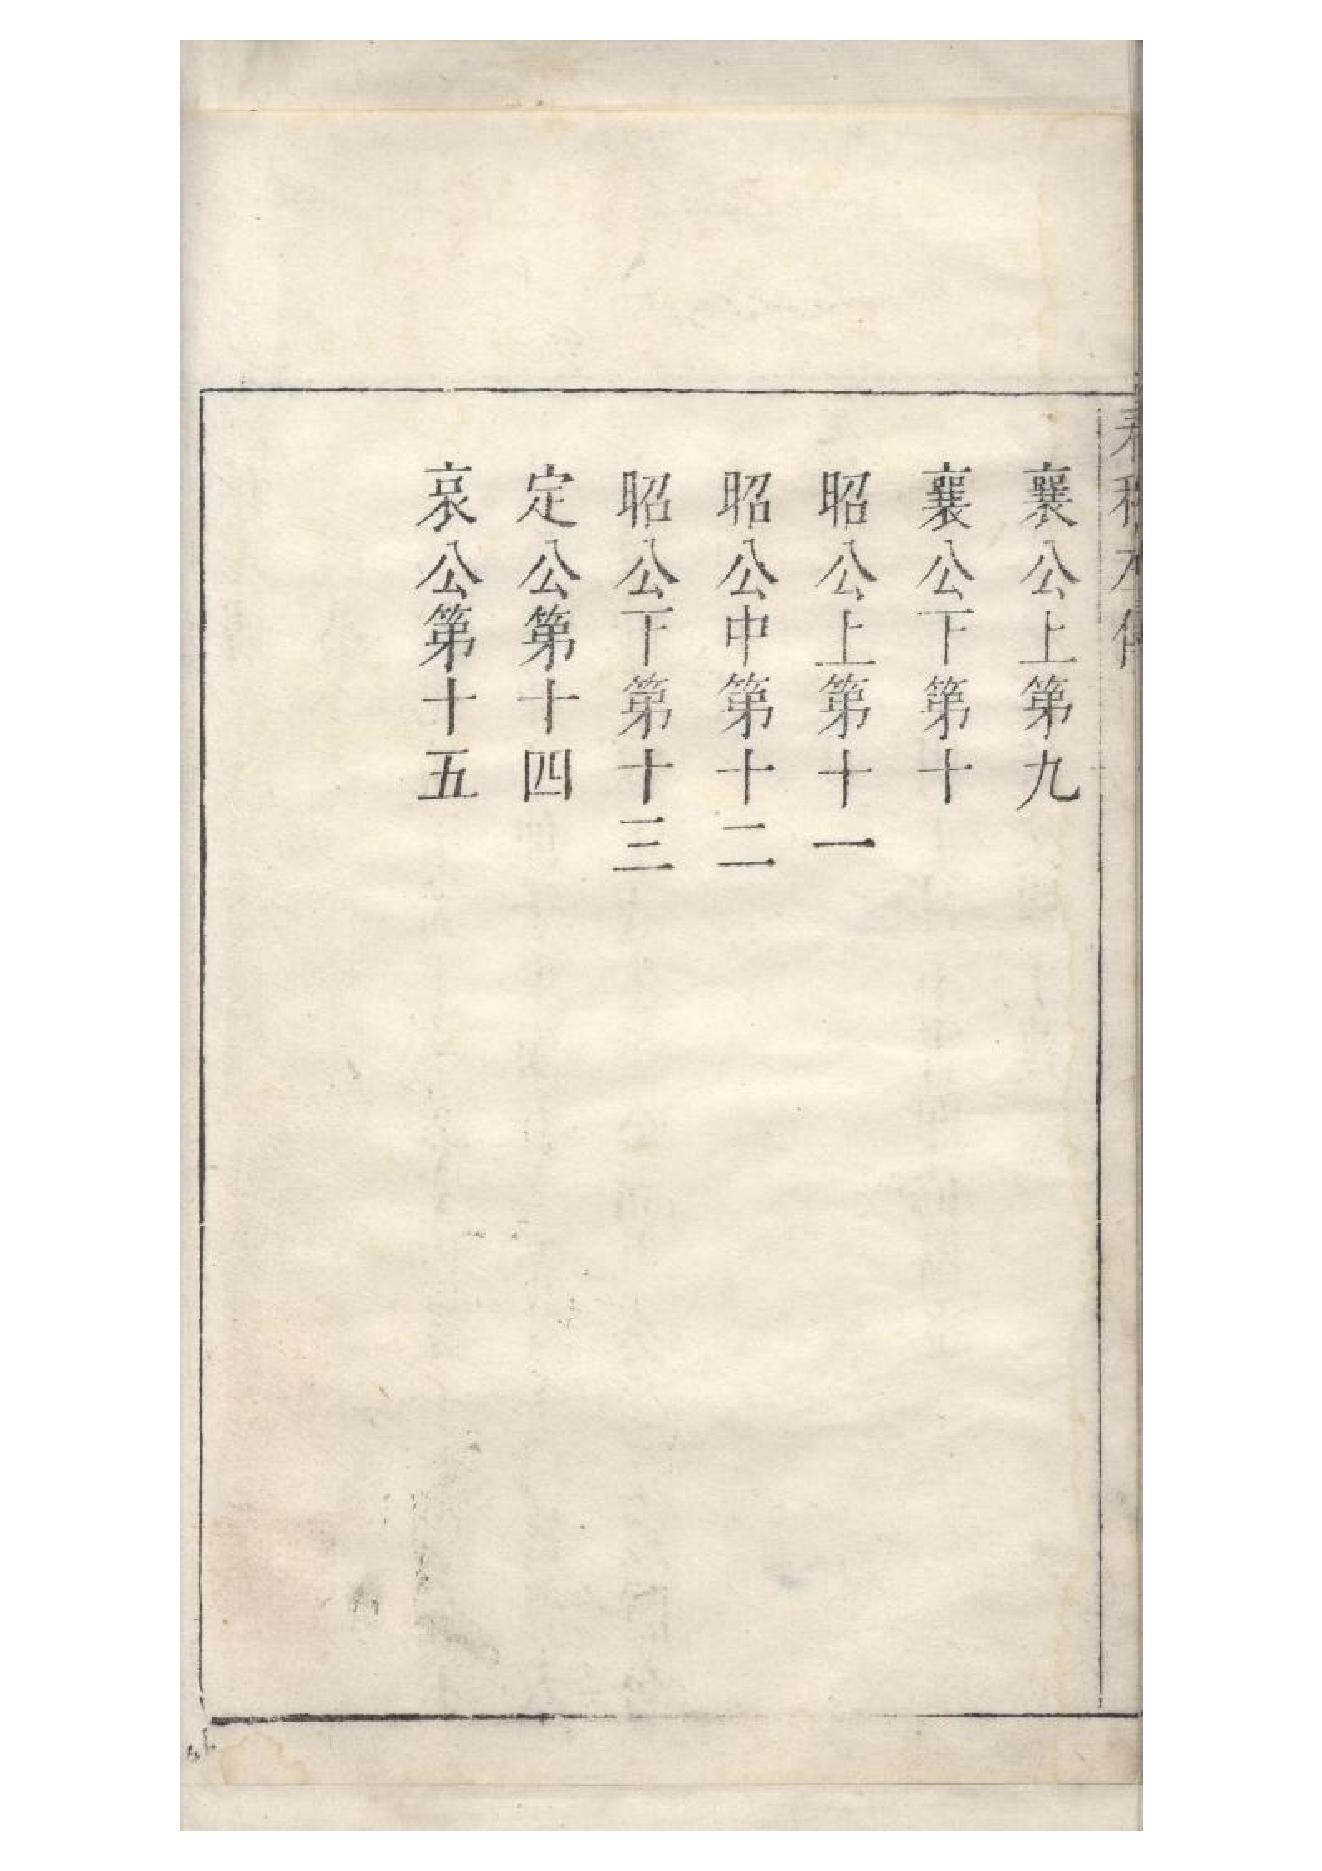 春秋左傳
襄公上第九
襄公下第十
昭公上第十一
昭公中第十二
昭公下第十三
定公第十四
哀公第十五